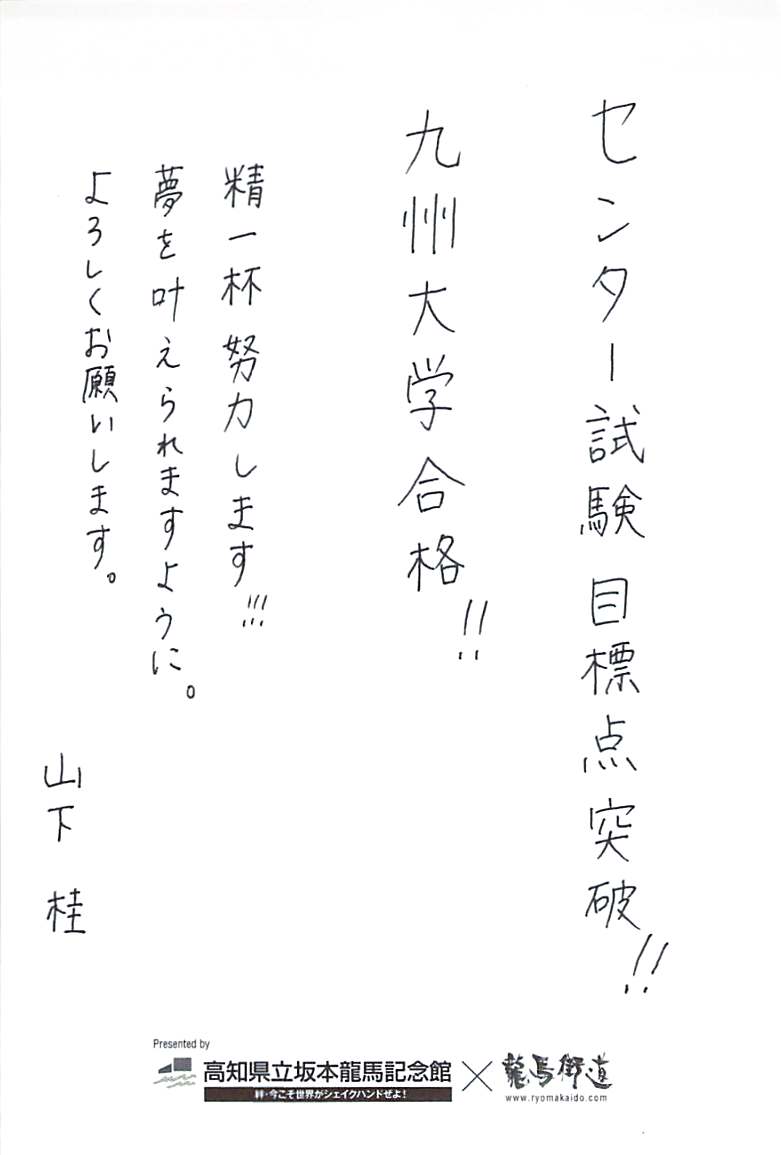 センター試験目標点突破!!
九州大学合格!!
精一杯努力します!!!
夢を叶えられますように。
よろしくお願いします。
山下 桂
Presented by
高知県立坂本龍馬記念館×龍馬街道
絆・今こそ世界がシェイクハンドぜよ!
www.ryomakaido.com